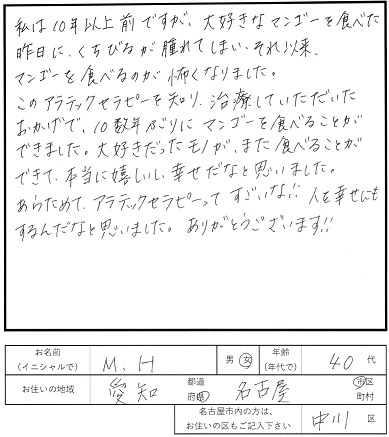 私は10年以上前ですが、大好きなマンゴーを食べた
昨日に、くちびるが腫れてしまい、それ以来、
マンゴーを食べるのが怖くなりました。
このアラテックセラピーを知り、治療していただいた
おかげで、10数年ぶりにマンゴーを食べることが
できました。大好きだったモノが、また食べることが
できて、本当に嬉しいし、幸せだなと思いました。
あらためて、アラテックセラピーって すごいな!! 人を幸せにも
するんだなと思いました。ありがとうございます!!
お名前
(イニシャルで) M.H 男・女 年齢
(年代で) 40 代
お住いの地域 愛知 都道
府県 名古屋 市区
町村
名古屋市内の方は、
お住いの区もご記入下さい 中川 区